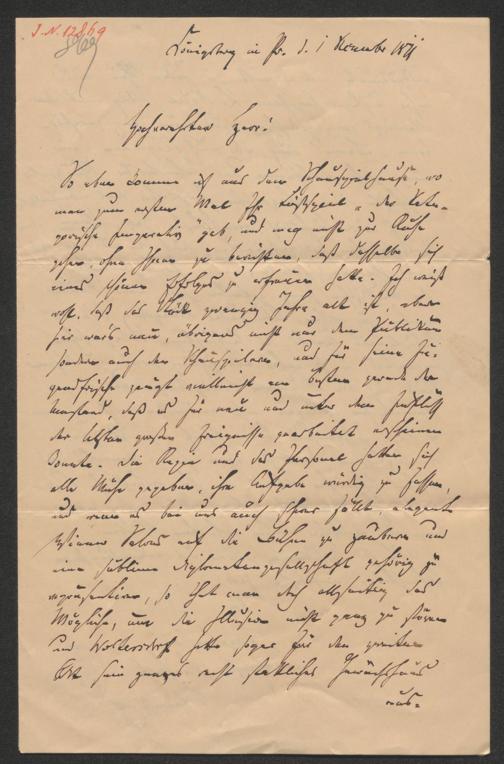 J. N. 12869
Königsberg in Pr. d. 1 November 1871
Hochverehrter Herr!
So eben komme ich aus dem Schauspielhause, wo
man zum ersten Mal Ihr Lustspiel „der kate-
gorische Imperativ" gab, und mag nicht zur Ruhe
gehen, ohne Ihnen zu berichten, daß dasselbe sich
eines schönen Erfolges zu erfreuen hatte. Ich weiß
wohl, daß das Stück zwanzig Jahre alt ist, aber
hier war's neu, übrigens nicht nur dem Publikum
sondern auch den Schauspielern, und für seine Ju-
gendfrische zeugt vielleicht am besten gerade der
Umstand, daß es für neu und unter dem Einfluß
der letzten großen Ereignisse gearbeitet erscheinen
konnte. Die Regie und das Personal hatten sich
alle Mühe gegeben, ihre Aufgabe würdig zu fassen,
und wenn es bei uns auch schwer fällt, elegante
Wiener Salons auf die Bühne zu zaubern und
eine sublime Diplomatengesellschaft gehörig zu
repräsentiren, so that man doch allseitig das
Mögliche, um die Illusion nicht ganz zu stören
und Woltersdorff hatte sogar für den zweiten
Akt sein ganzes recht stattliches Gewächshaus
aus-